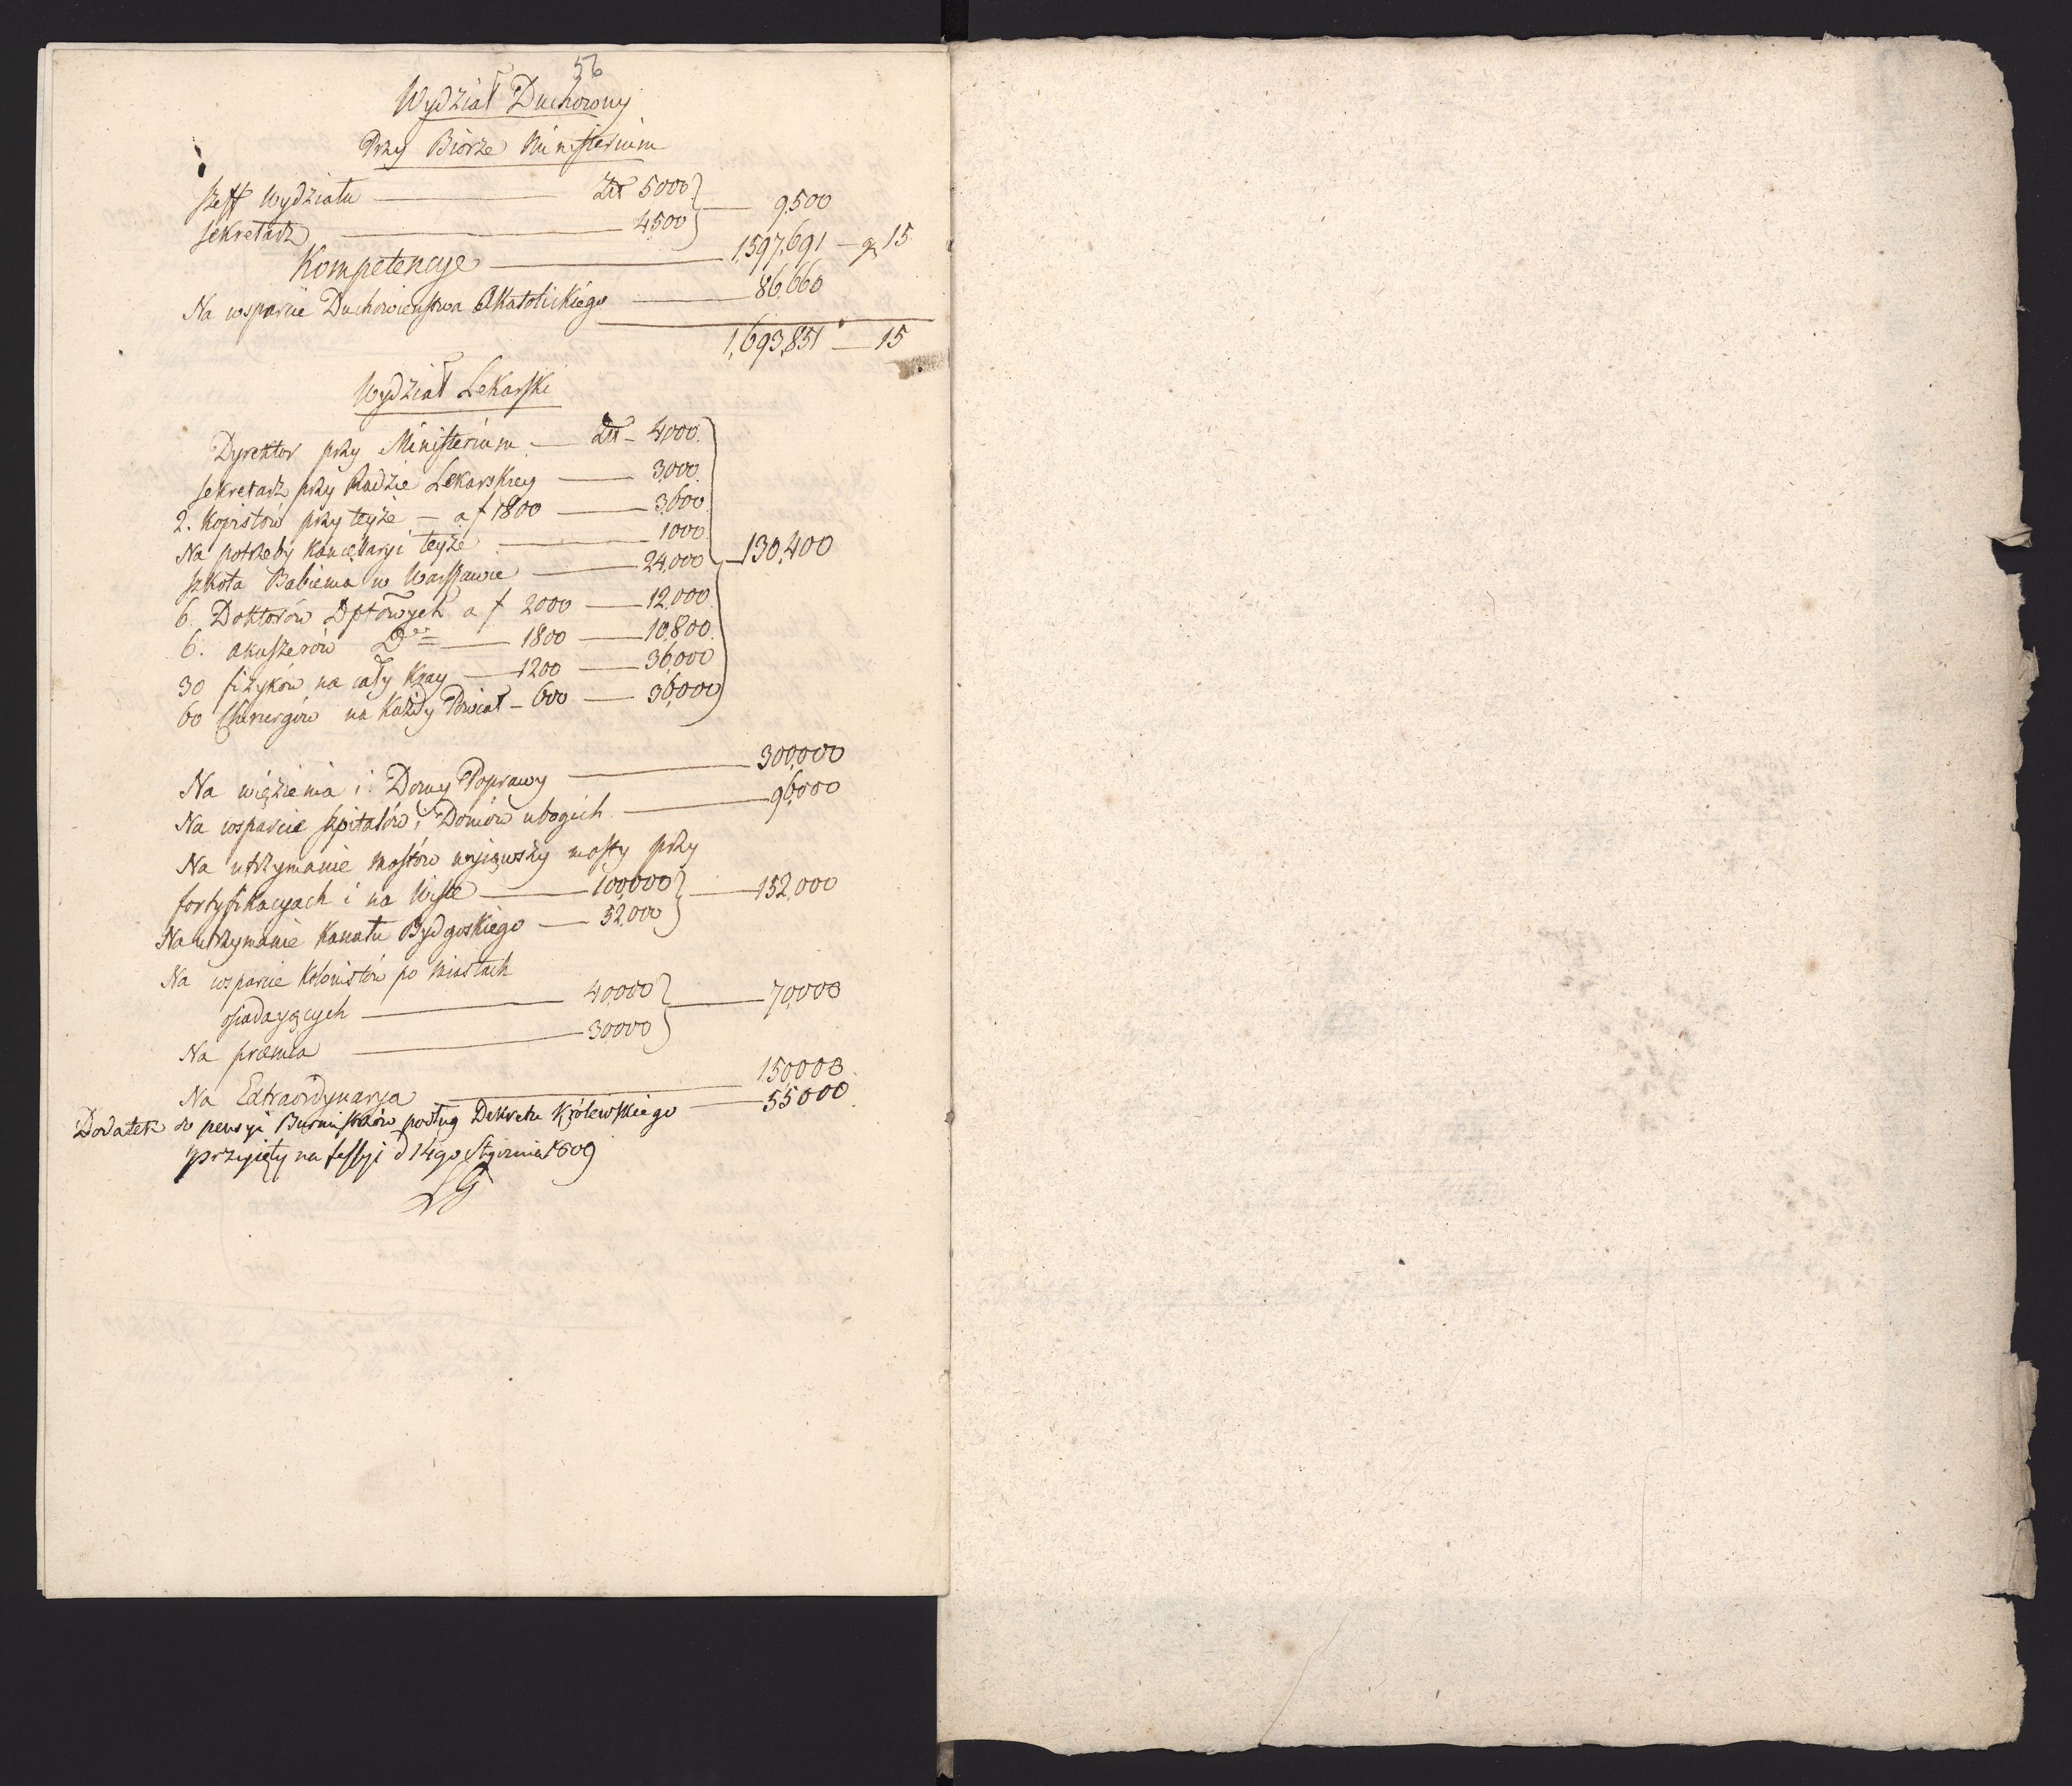 56
Wydział Duchowny
Przy Biórze Ministerium
Szeff Wydziału — Złt 5000 — 9,500
Sekretarz — 4500
Kompetencye — 1,597,691 — gr 15
Na wsparcie Duchowieństwa Akatolickiego — 86,660
1,693,851 — 15
Wydział Lekarski
Dyrektor przy Ministerium — Złt — 4,000.
Sekretarz przy Radzie Lekarskiey — 3,000.
2. Kopistów przy teyże — a f 1800 — 3,600.
Na potrzeby Kancellaryi teyże — 1000
Szkoła Babienia w Warszawie — 24,000 — 130,400
6. Doktorów Dptowych a f 2000 — 12,000.
6. Akuszerów Do — 1800 — 10,800.
30 fizyków na cały Kray — 1200 — 36,000
60 Chirurgów na każdy Powiat — 600 — 36,000
Na więzienia i Domy Poprawy — 300,000
Na wsparcie Szpitalów i Domów ubogich — 96,000
Na utrzymanie mostów wyiąwszy mosty przy
fortyfikacyach i na Wiśle — 100,000 — 152,000
Na utrzymanie Kanału Bydgoskiego — 52,000
Na wsparcie Kolonistów po Miastach
osiadaiących — 40,000 — 70,000
Na præmia — 30,000
Na Extraordynarya — 150,000
Dodatek do pensyi Burmistrzów podług Dekretu Królewskiego — 55000.
przyięty na Sessyi d 14go Stycznia 1809